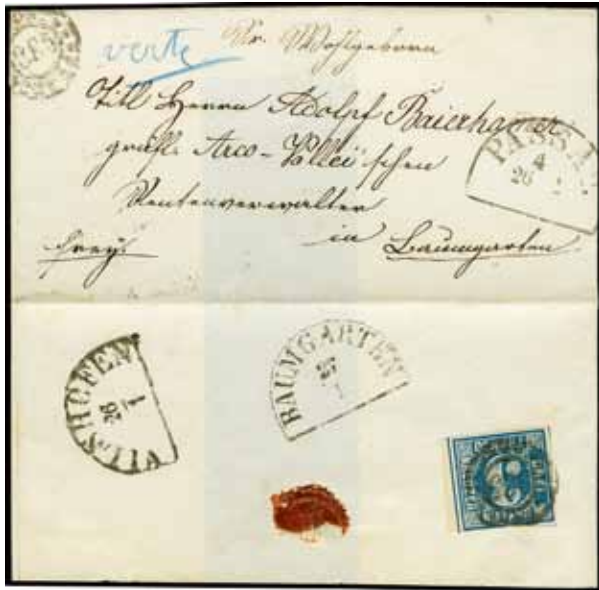 verte
Sr. Wohlgeborn
Titl Herrn Adolf Baierhamer
gräfl. Arco-Vallei'schen
Rentenverwalter
in Baumgarten.
frey.
PASSAU
4
26
1
VILSHOFEN
26
1
BAUMGARTEN
26
1